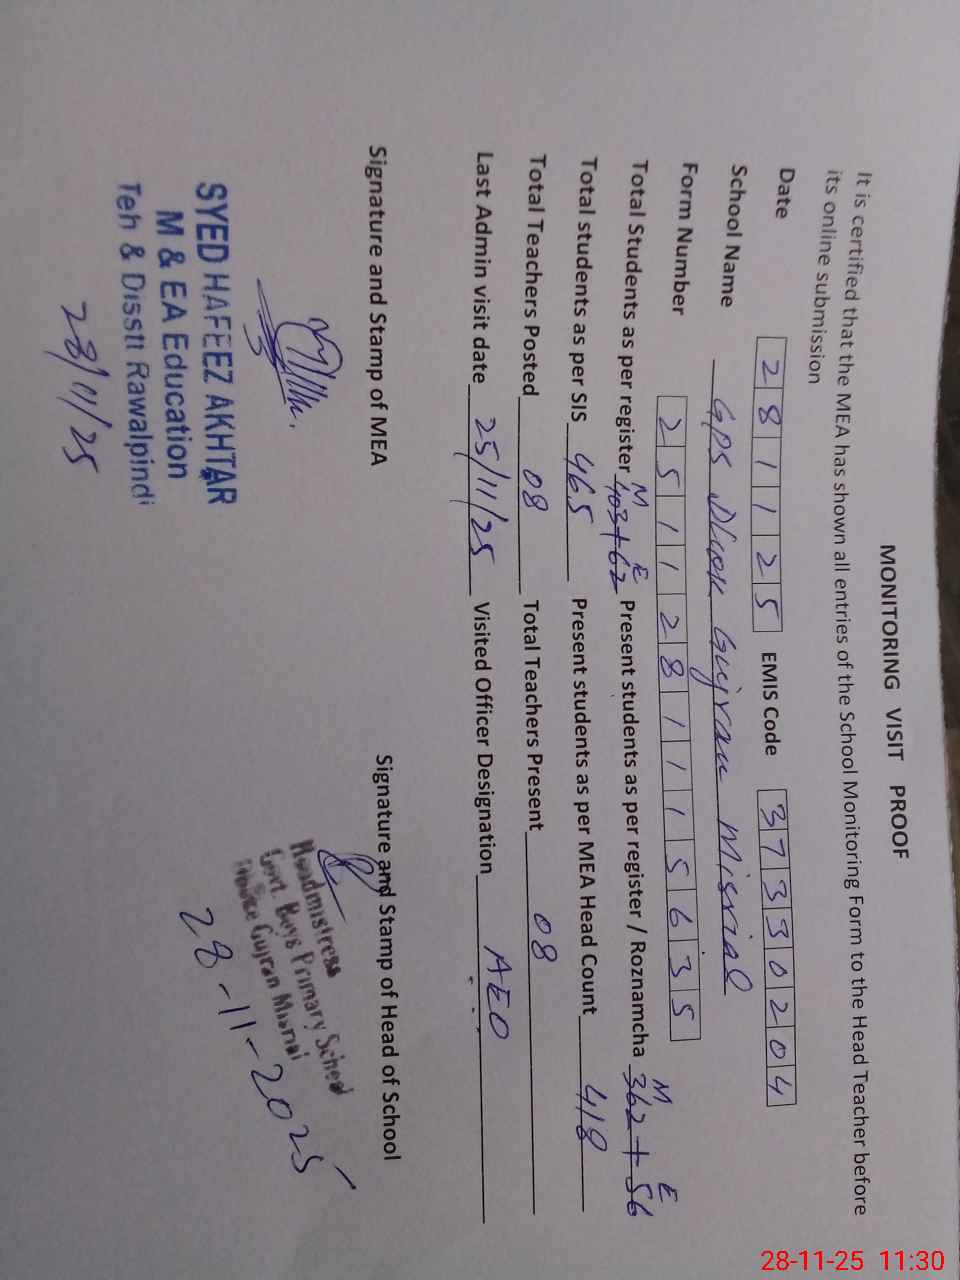 MONITORING VISIT PROOF
It is certified that the MEA has shown all entries of the School Monitoring Form to the Head Teacher before
its online submission
Date 281125 EMIS Code 37330204
School Name GPS Dhok Gujran Misrial
Form Number 2511281115635
Total Students as per register M 403 + E 62 Present students as per register / Roznamcha M 362 + E 56
Total students as per SIS 465 Present students as per MEA Head Count 418
Total Teachers Posted 08 Total Teachers Present 08
Last Admin visit date 25/11/25 Visited Officer Designation AEO
Signature and Stamp of MEA Signature and Stamp of Head of School
SYED HAFEEZ AKHTAR
M & EA Education
Teh & Disstt Rawalpindi
28/11/25
Headmistress
Govt. Boys Primary School
Gujran Misrial
28-11-2025
28-11-25 11:30